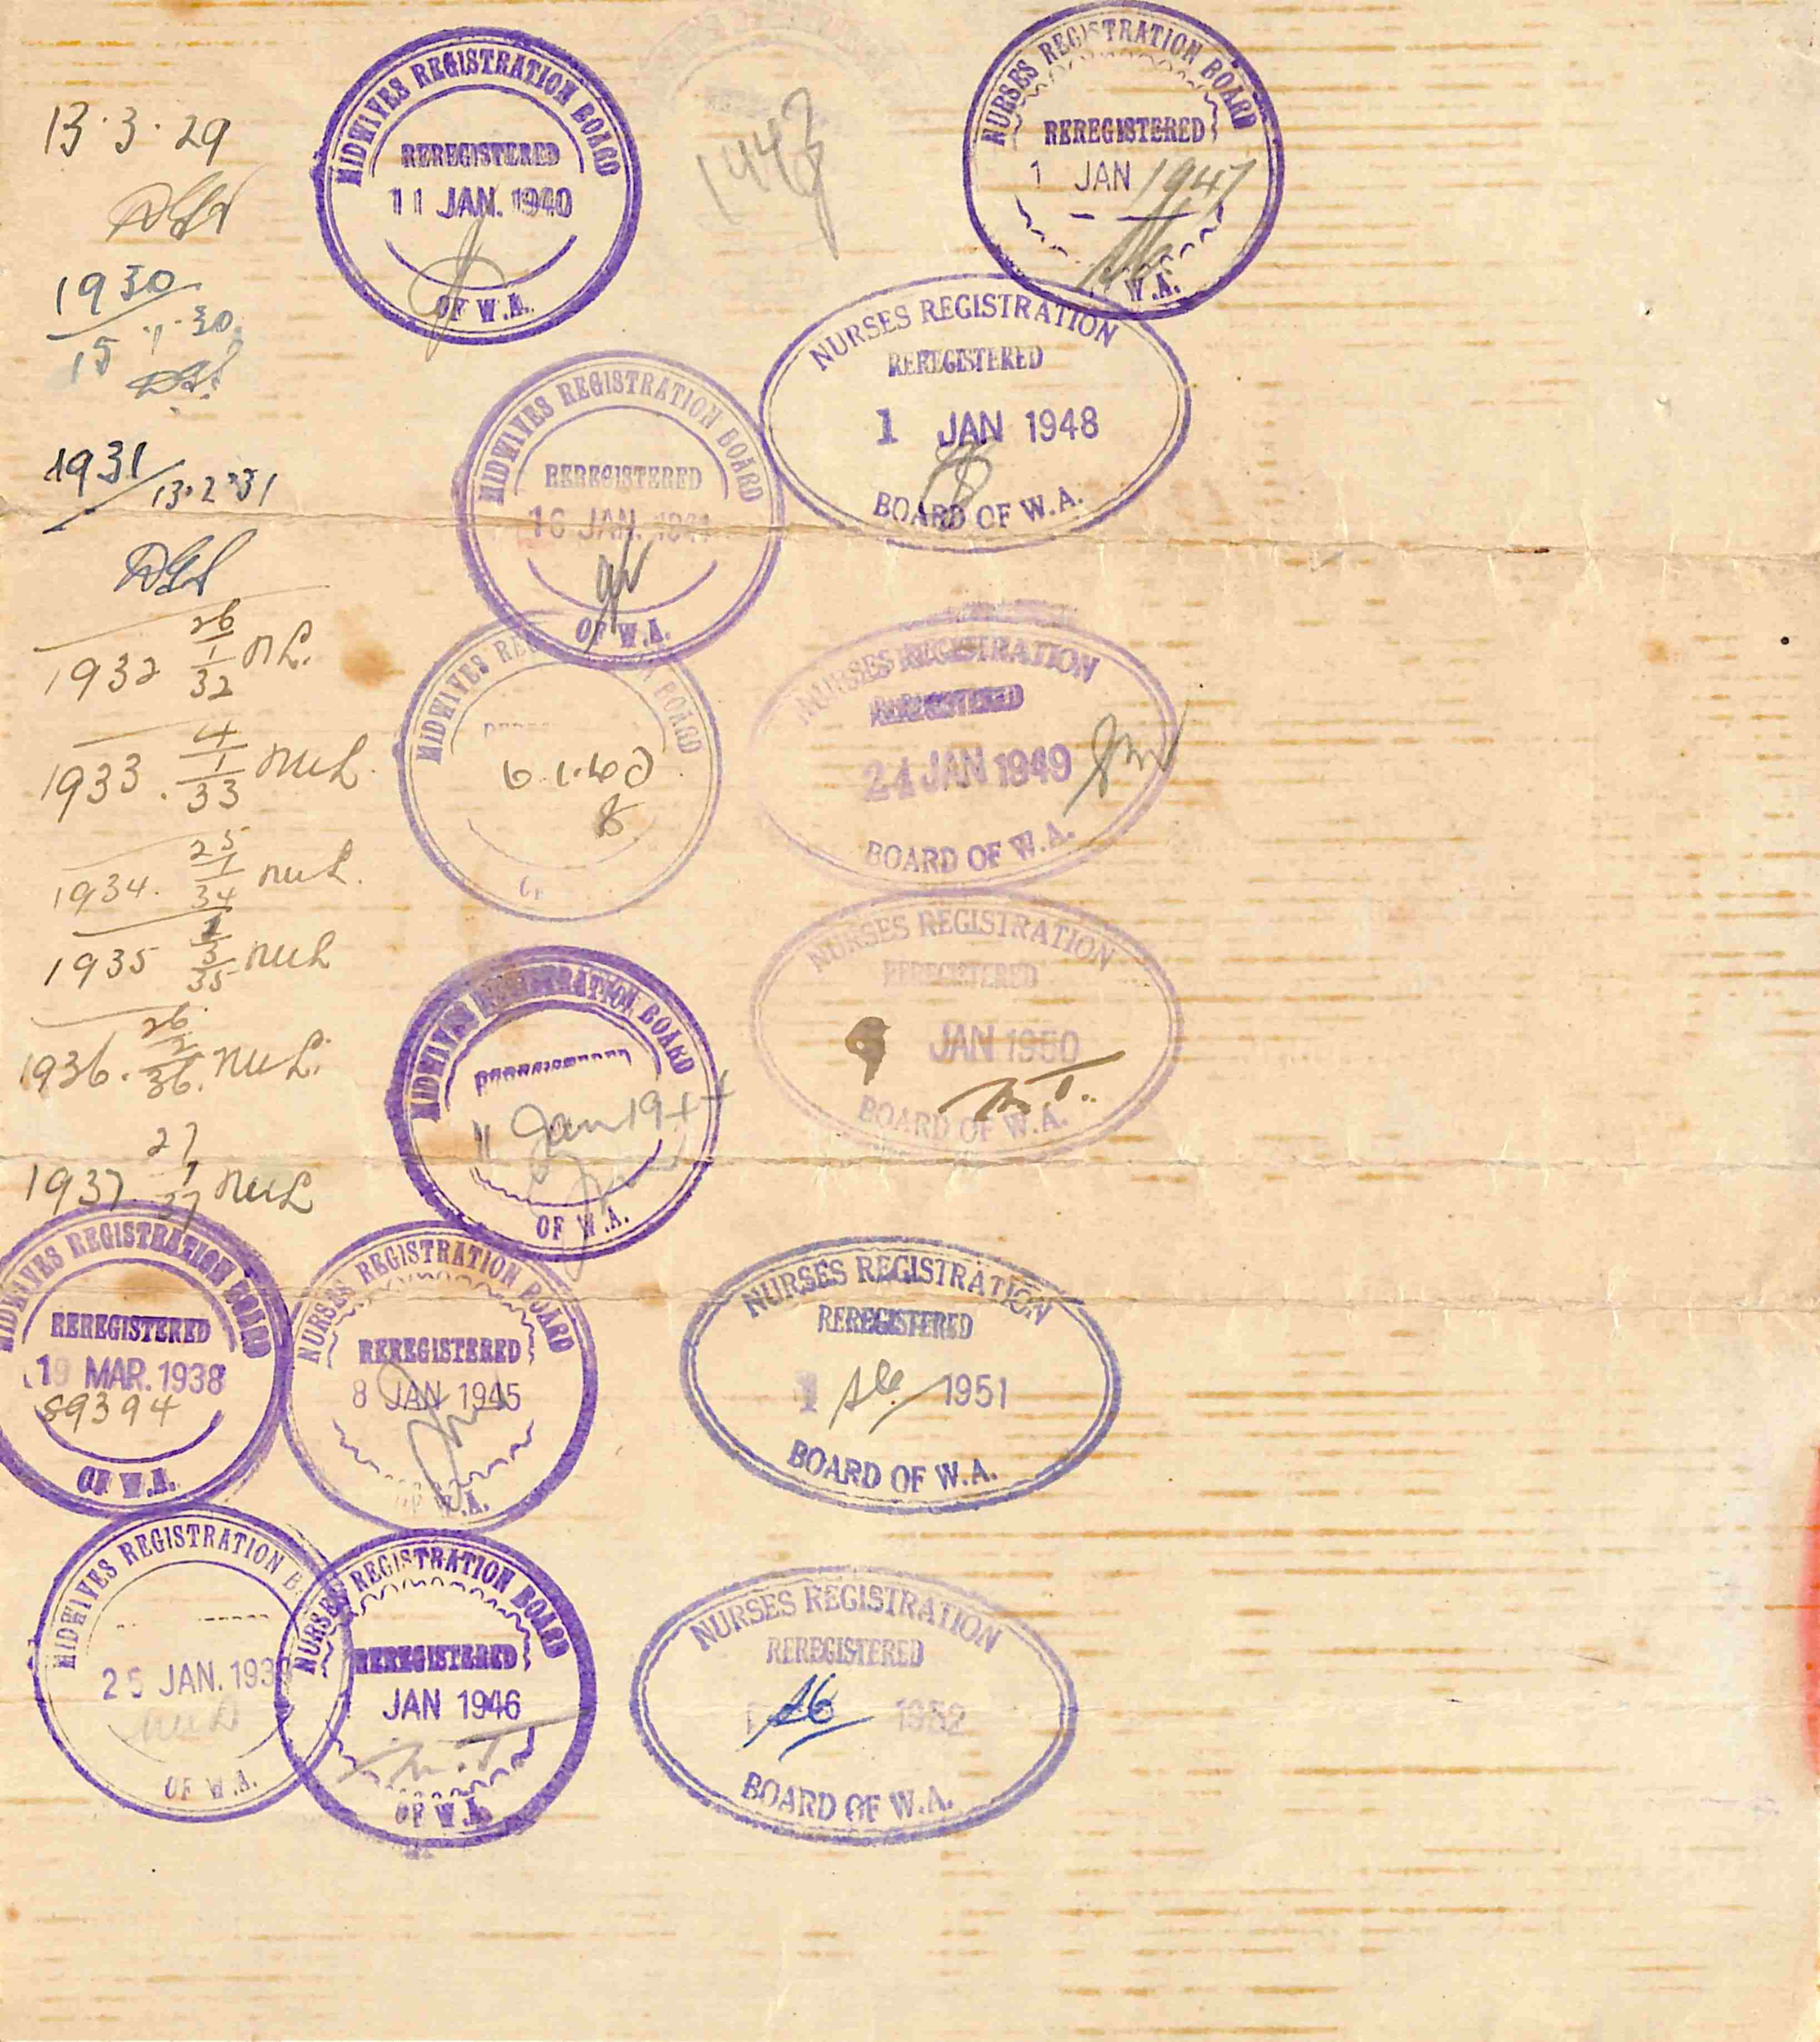 13.3.29
1930
15.1.30
1931
13.2.31
1932 26/1/32
1933. 4/1/33
1934. 25/1/34
1935 1/3/35
1936. 26/ /36.
1937 27/1/37
MIDWIVES REGISTRATION BOARD
REREGISTERED
19 MAR. 1938
89394
OF W.A.
MIDWIVES REGISTRATION B
25 JAN. 193
OF W.A.
MIDWIVES REGISTRATION BOARD
REREGISTERED
11 JAN. 1940
OF W.A.
MIDWIVES REGISTRATION BOARD
REREGISTERED
16 JAN. 1941
OF W.A.
MIDWIVES REG BOARD
MIDWIVES REGISTRATION BOARD
11 Jan 1944
OF W.A.
NURSES REGISTRATION BOARD
REREGISTERED
8 JAN 1945
OF W.A.
NURSES REGISTRATION BOARD
REREGISTERED
JAN 1946
OF W.A.
NURSES REGISTRATION BOARD
REREGISTERED
1 JAN 1947
W.A.
NURSES REGISTRATION
REREGISTERED
1 JAN 1948
BOARD OF W.A.
NURSES REGISTRATION
REREGISTERED
24 JAN 1949
BOARD OF W.A.
NURSES REGISTRATION
REREGISTERED
9 JAN 1950
BOARD OF W.A.
NURSES REGISTRATION
REREGISTERED
1 1951
BOARD OF W.A.
NURSES REGISTRATION
REREGISTERED
1952
BOARD OF W.A.